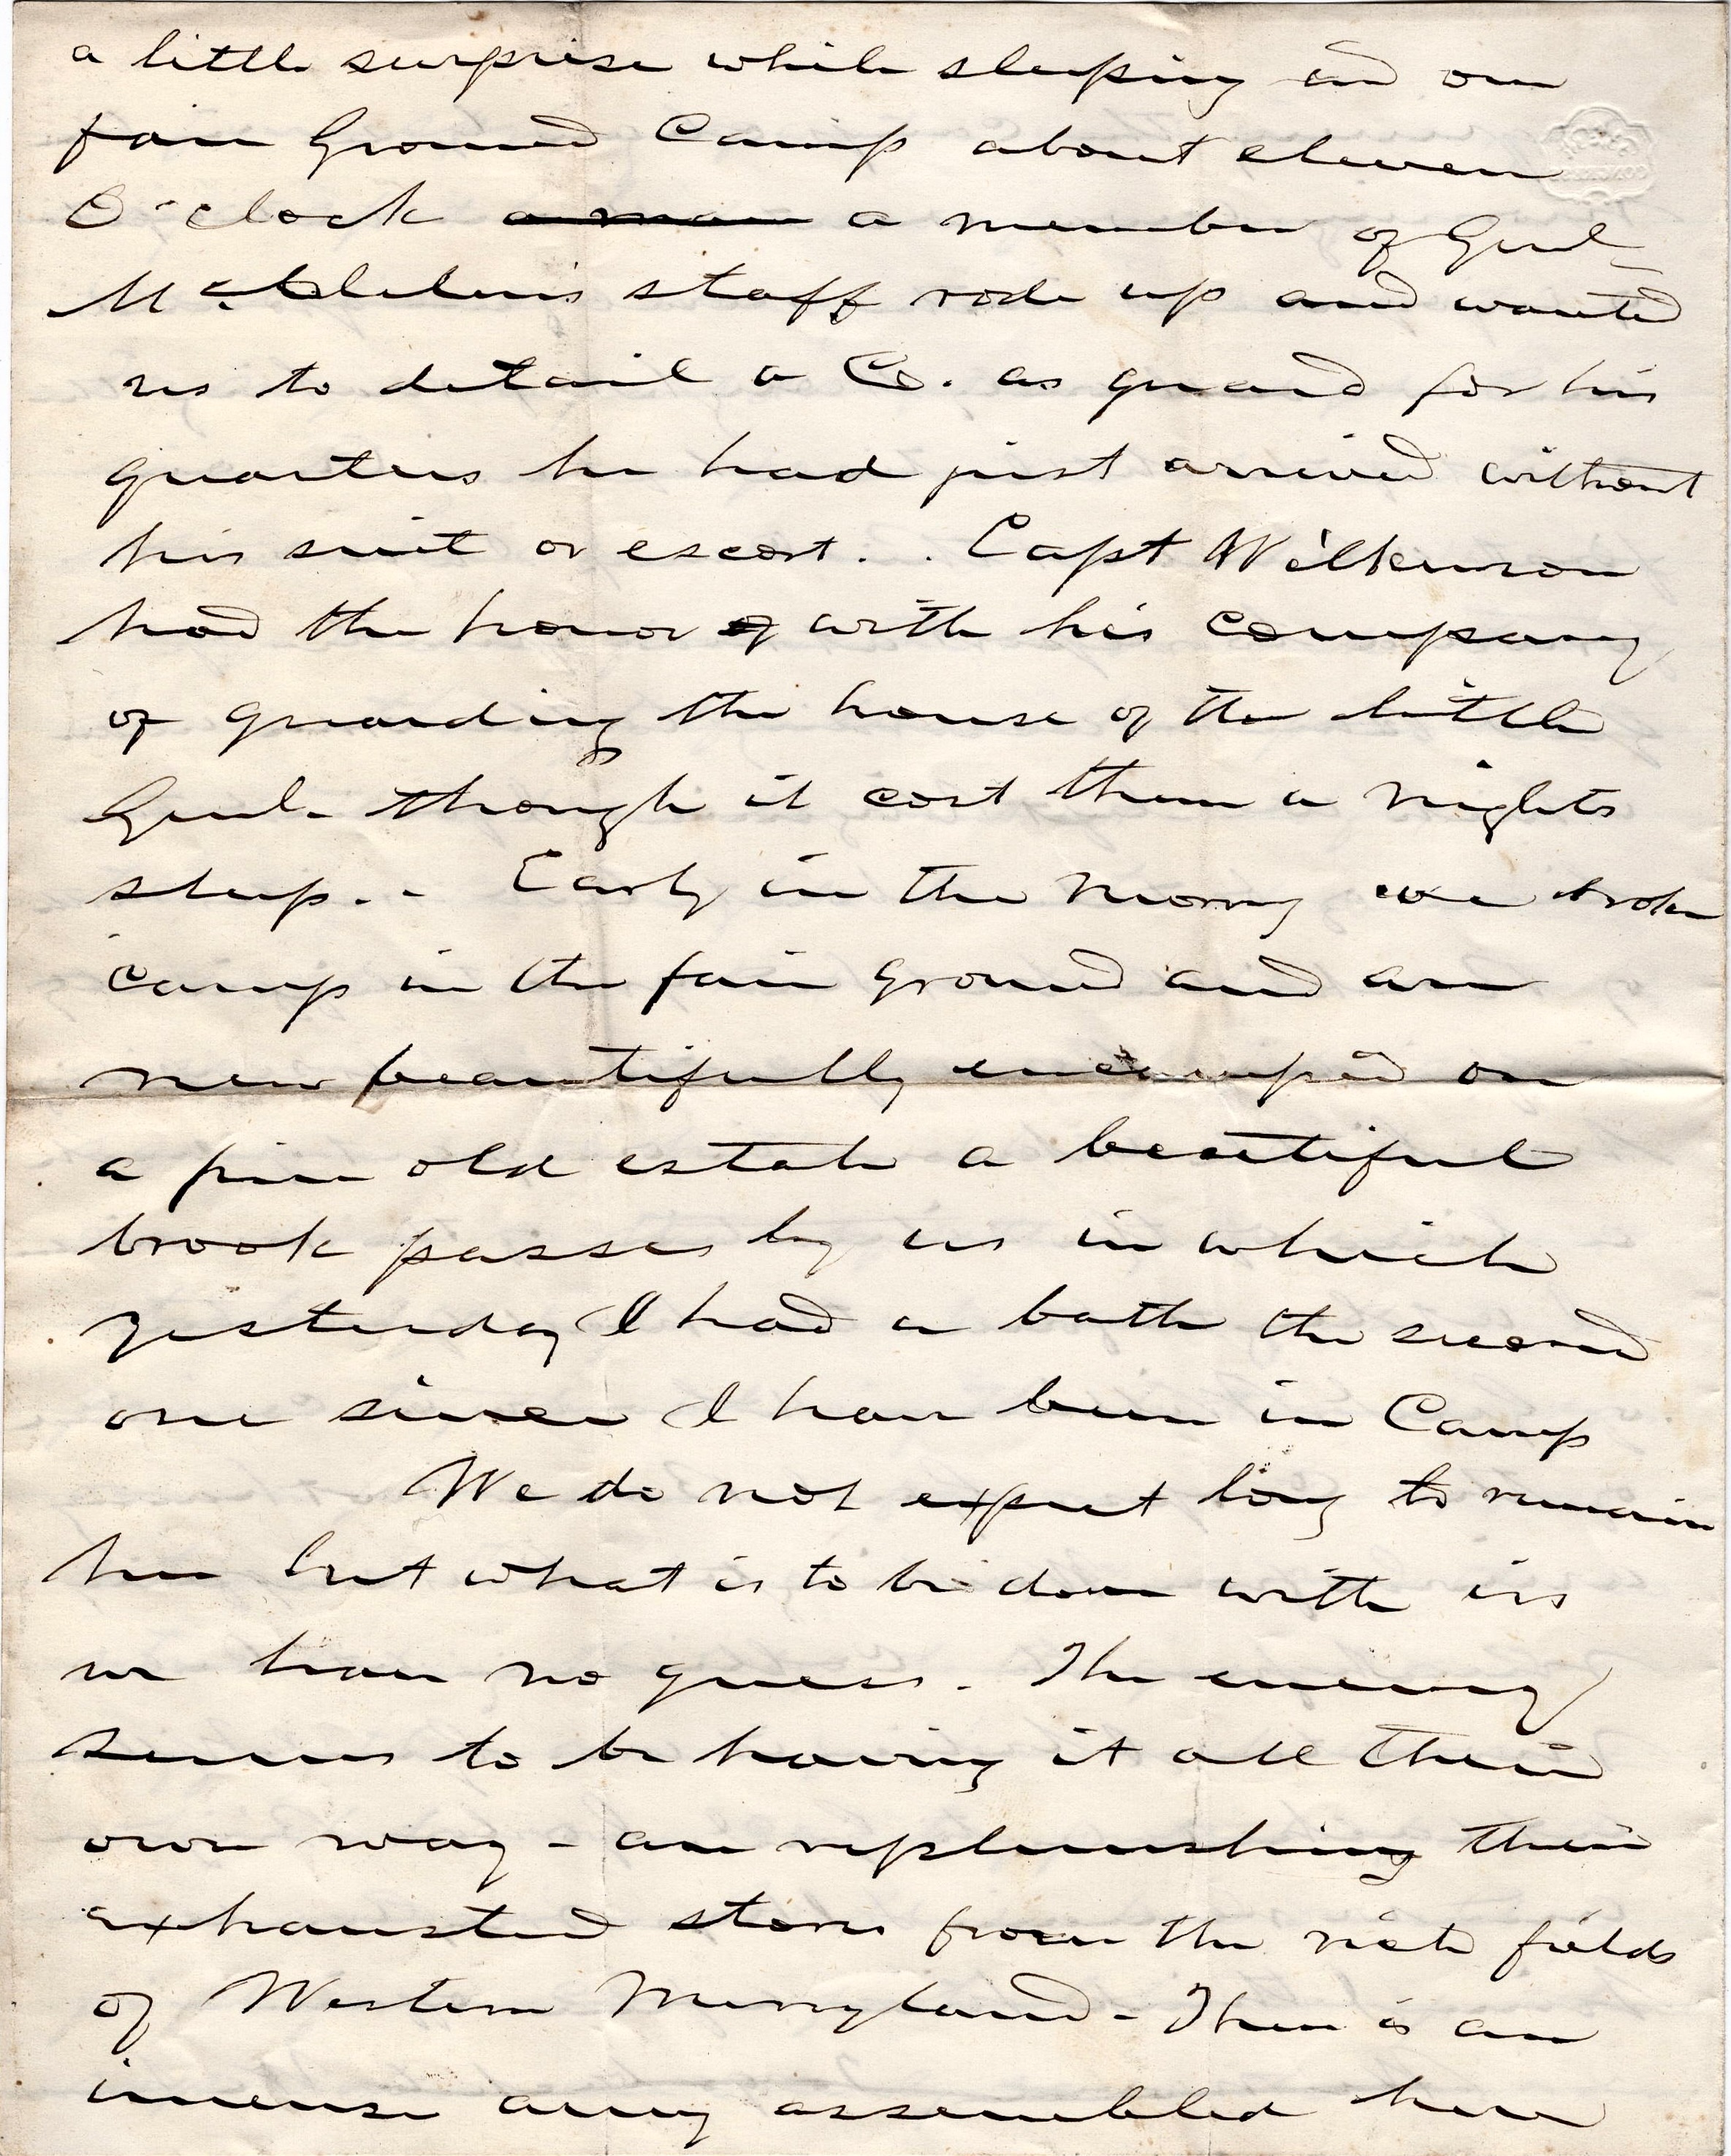 a little surprise while sleeping in our
fair Ground Camp about eleven
O'clock a man a member of Genl
McClelens staff rode up and wanted
us to detail a Co. as guard for his
quarters he had just arrived without
his suit or escort. . Capt Wilkinson
had the honor of with his company
of guarding the house of the little
Genl. though it cost them a nights
sleep. - Early in the morng we broke
camp in the fair ground and are
now beautifully encamped on
a fine old estate a beautiful
brook passes by us in which
yesterday I had a bath the second
one since I have been in Camp
We do not expect long to remain
here but what is to be done with us
we have no guess. The enemy
seems to be having it all their
own way - are replenishing their
exhausted stores from the rich fields
of Western Marryland - There is an
imense army assembled here